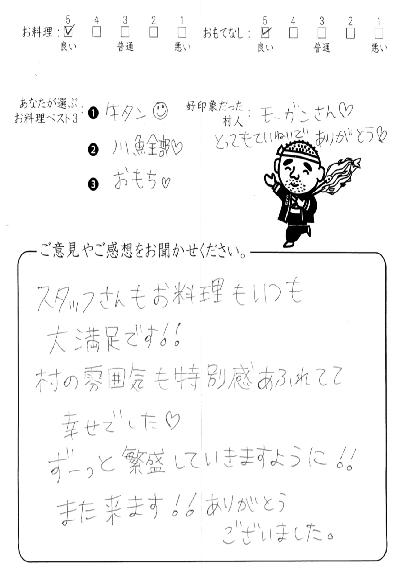 お料理: 5 4 3 2 1 良い 普通 悪い
おもてなし: 5 4 3 2 1 良い 普通 悪い
あなたが選ぶ
お料理ベスト3:
❶ 牛タン
❷ 川魚全部♡
❸ おもち♡
好印象だった
村人: モーガンさん♡
とってもていねいで ありがとう♡
ご意見やご感想をお聞かせください。
スタッフさんもお料理もいつも
大満足です!!
村の雰囲気も特別感あふれてて
幸せでした♡
ずーっと繁盛していきますように!!
また来ます!!ありがとう
ございました。